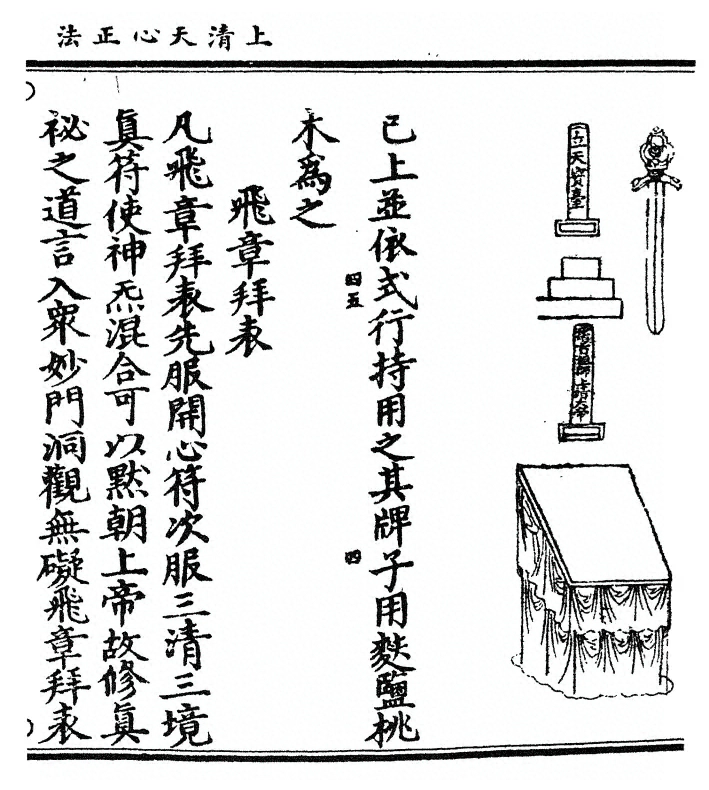 上清天心正法
天寶臺
已上並依式行持用之其牌子用麩鹽桃
四五
四
木爲之
飛章拜表
凡飛章拜表先服開心符次服三清三境
眞符使神炁混合可以默朝上帝故修眞
祕之道言入衆妙門洞觀無礙飛章拜表